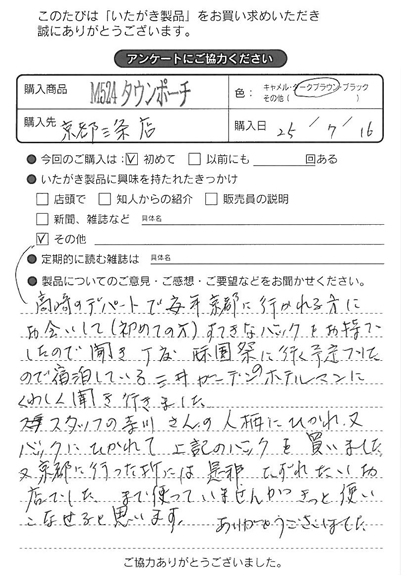 このたびは「いたがき製品」をお買い求めいただき
誠にありがとうございます。
アンケートにご協力ください
購入商品 M524 タウンポーチ 色： キャメル・ダークブラウン・ブラック
その他（ ）
購入先 京都三条店 購入日 25 / 7 / 16
● 今回のご購入は： ☑ 初めて □ 以前にも 回ある
● いたがき製品に興味を持たれたきっかけ
□ 店頭で □ 知人からの紹介 □ 販売員の説明
□ 新聞、雑誌など 具体名
☑ その他
● 定期的に読む雑誌は 具体名
● 製品についてのご意見・ご感想・ご要望などをお聞かせください。
高崎のデパートで毎年京都に行かれる方に
お会いして(初めての方)すてきなバックをお持ちで
したので聞き丁度 祇園祭に行く予定
ので宿泊している三井ガーデンのホテルマンに
くわしく聞き行きました
スタッフの さんの人柄にひかれ 又
バックにひかれて上記のバックを買いました
又京都に行った折には是非 たずれたいお
店でした まだ使っていませんがきっと使い
こなせると思います。 ありがとうございました
ご協力ありがとうございました。